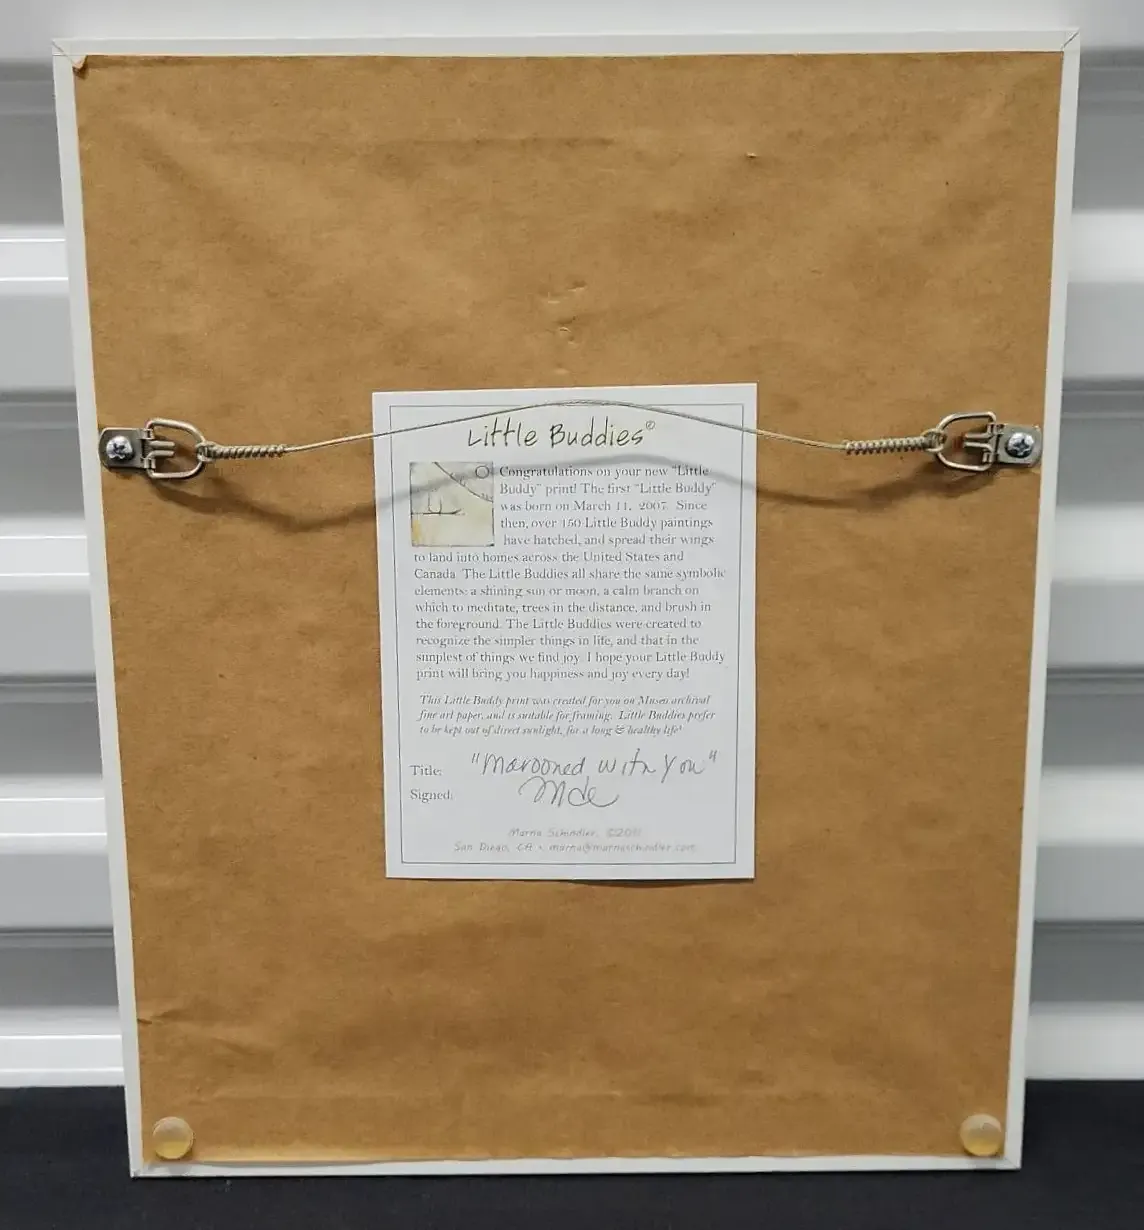 Little Buddies®
Congratulations on your new "Little
Buddy" print! The first "Little Buddy"
was born on March 11, 2007. Since
then, over 150 Little Buddy paintings
have hatched, and spread their wings
to land into homes across the United States and
Canada. The Little Buddies all share the same symbolic
elements: a shining sun or moon, a calm branch on
which to meditate, trees in the distance, and brush in
the foreground. The Little Buddies were created to
recognize the simpler things in life, and that in the
simplest of things we find joy. I hope your Little Buddy
print will bring you happiness and joy every day!
This Little Buddy print was created for you on Museo archival
fine art paper, and is suitable for framing. Little Buddies prefer
to be kept out of direct sunlight, for a long & healthy life!
Title: "Marooned with You"
Signed:
Marna Schindler, ©
San Diego, CA • marna@marnaschindler.com